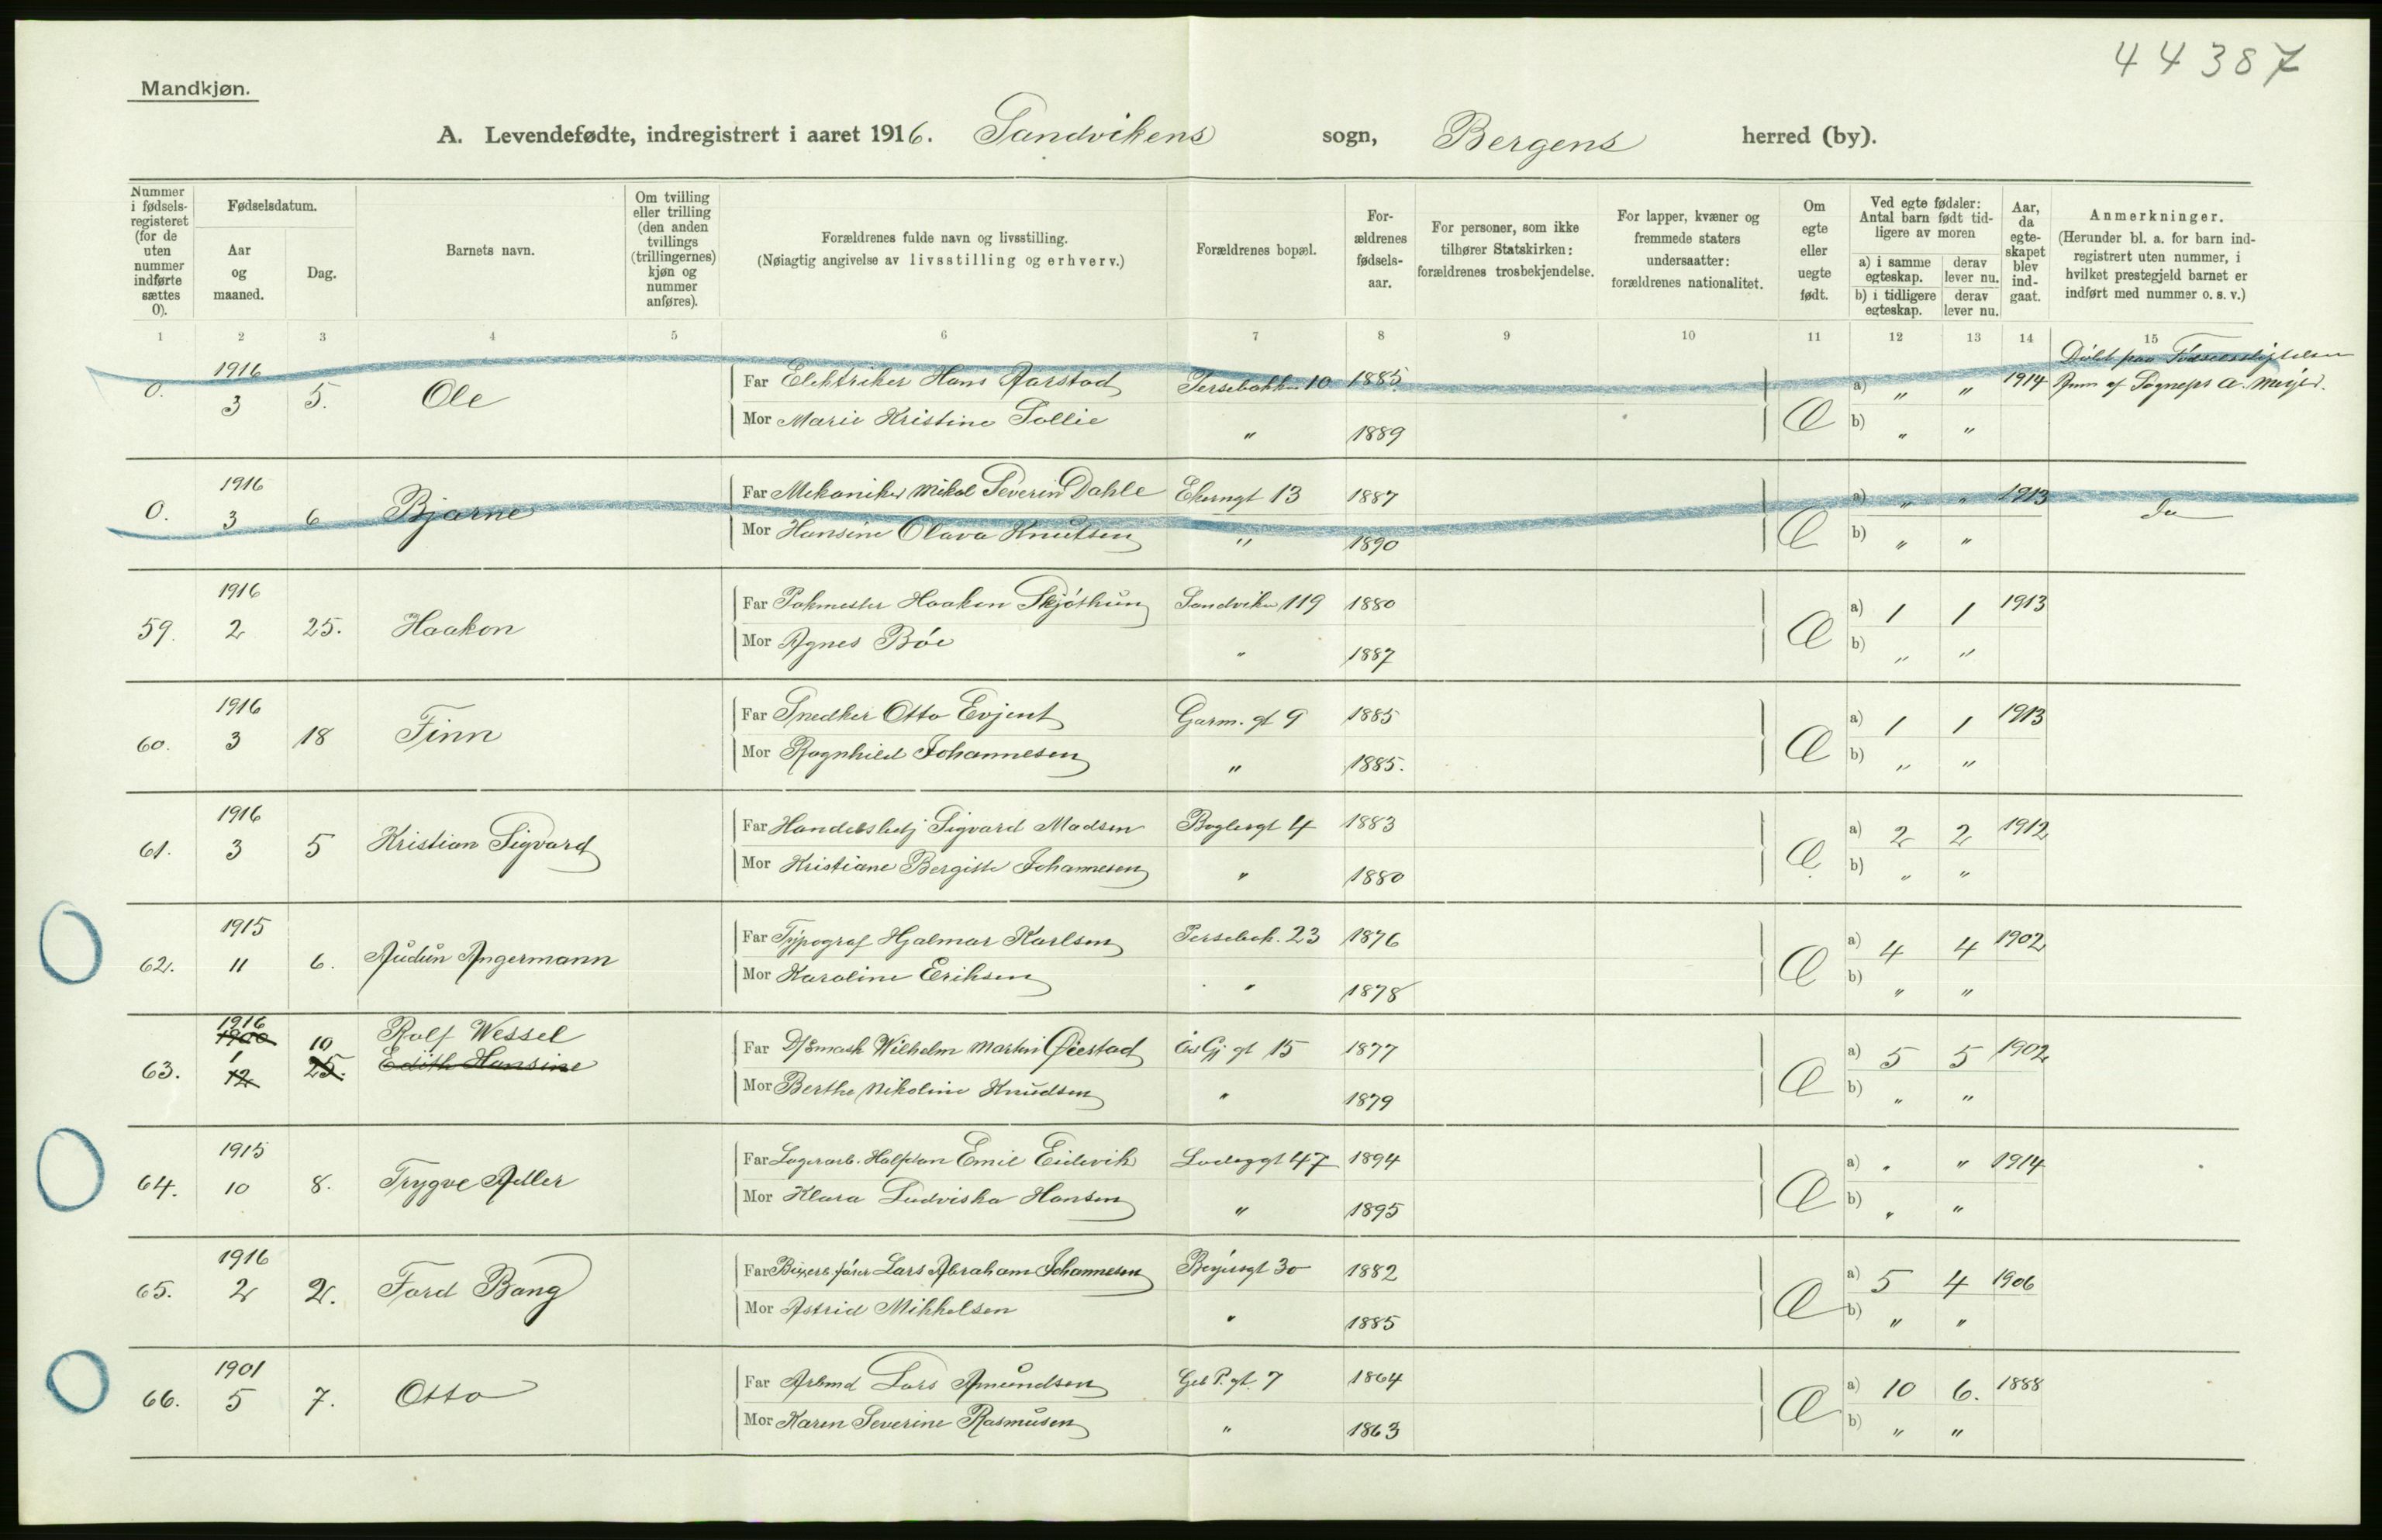 44387
Mandkjøn.
A. Levendefødte, indregistrert i aaret 1916. Sandvikens sogn, Bergens herred (by).
Nummer i fødsels-registeret (for de uten nummer indførte sættes 0).
Fødselsdatum.
Aar og maaned.
Dag.
Barnets navn.
Om tvilling eller trilling (den anden tvillings (trillingernes) kjøn og nummer anføres).
Forældrenes fulde navn og livsstilling.
(Nøiagtig angivelse av livsstilling og erhverv.)
Forældrenes bopæl.
For-ældrenes fødsels-aar.
For personer, som ikke tilhører Statskirken: forældrenes trosbekjendelse.
For lapper, kvæner og fremmede staters undersaatter: forældrenes nationalitet.
Om egte eller uegte født.
Ved egte fødsler: Antal barn født tid-ligere av moren
a) i samme egteskap. derav lever nu.
b) i tidligere egteskap. derav lever nu.
Aar, da egte-skapet blev ind-gaat.
Anmerkninger.
(Herunder bl. a. for barn ind-registrert uten nummer, i hvilket prestegjeld barnet er indført med nummer o. s. v.)
1 2 3 4 5 6 7 8 9 10 11 12 13 14 15
0. 1916 3 5. Ole
Far Elektriker Hans Aarstad Persebakken 10 1885 a) " " 1914
Mor Marie Kristine Sollie " 1889 Æ b) " "
Døbt paa Fødselsstiftelsen
Anm af Sognepr A. Meyer.
0. 1916 3 6 Bjarne
Far Mekaniker Mikal Severin Dahle Ekerngt 13 1887 a) " " 1913 Do
Mor Hansine Olava Knutsen " 1890 Æ b) " "
59. 1916 2 25. Haakon
Far Pakmester Haakon Skjøthun Sandviken 119 1880 a) 1 1 1913
Mor Agnes Bøe " 1887 Æ b) " "
60. 1916 3 18 Finn
Far Snedker Otto Evjent Garm. gt 9 1885 a) 1 1 1913
Mor Ragnhild Johannesen " 1885. Æ b) " "
61. 1916 3 5 Kristian Sigvard
Far Handelsbetj Sigvard Madsen Boglergt 4 1883 a) 2 2 1912
Mor Kristiane Bergitte Johannesen " 1880 Æ b) " "
62. 1915 11 6. Audun Angermann
Far Typograf Hjalmar Karlsen Persebak. 23 1876 a) 4 4 1902
Mor Karoline Eriksen " 1878 Æ b) " "
63. 1916 1900 1 12 10 25. Rolf Wessel
Edith Hansine
Far Wilhelm Martin Øiestad 15 1877 a) 5 5 1902
Mor Berthe Nikoline Knudsen " 1879 Æ b) " "
64. 1915 10 8. Trygve Adler
Far Lagerarb. Halfdan Emil Eidevik Lodeggt 47 1894 a) " " 1914
Mor Klara Ludviska Hansen " 1895 Æ b) " "
65. 1916 2 2. Ford Bang
Far Lars Abraham Johannesen 30 1882 a) 5 4 1906
Mor Astrid Mikkelsen " 1885 Æ b) " "
66. 1901 5 7. Otto
Far Arbmd Lars Amundsen Geb P. gt. 7 1864 a) 10 6. 1888
Mor Karen Severine Rasmusen " 1863 Æ b) " "